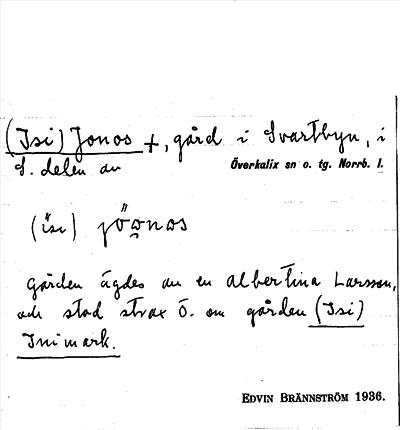 (Isi) Jonos +, gård i Svartbyn, i
S. delen av
Överkalix sn o. tg. Norrb. l.
(ïsi) jöͧnos
Gården ägdes av en Albertina Larsson,
och stod strax Ö. om gården (Isi)
Inimark.
EDVIN BRÄNNSTRÖM 1936.